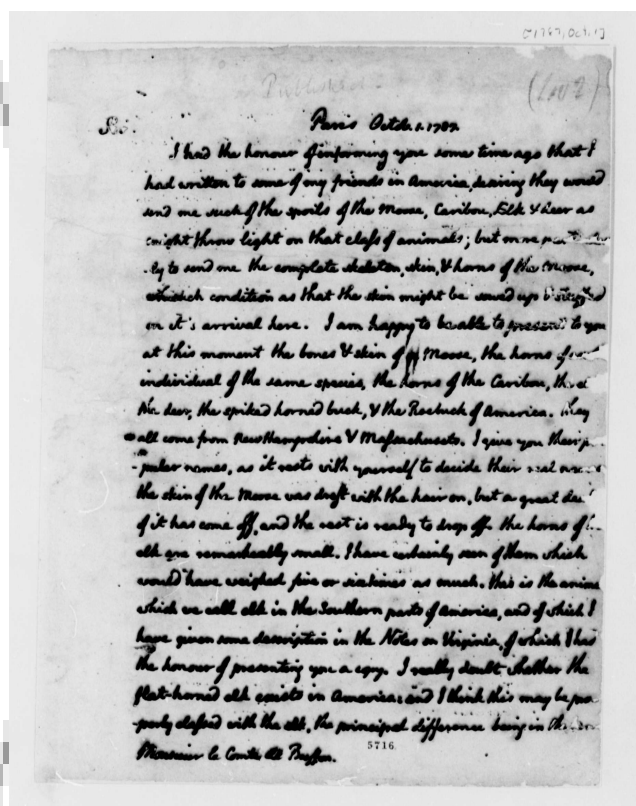 Published
Sir
Paris Octob. 1. 1787.
I had the honour of informing you some time ago that I
had written to some of my friends in America, desiring they would
send me such of the spoils of the Moose, Caribou, Elk & deer as
might throw light on that class of animals; but more
ly to send me the complete skeleton, skin, & horns of the Moose,
in such condition as that the skin might be sewed up & stuffed
on it's arrival here. I am happy to be able to present to you
at this moment the bones & skin of a Moose, the horns of
individual of the same species, the horns of the Caribou, the
the deer, the spiked horned buck, & the Roebuck of America. they
all come from New Hampshire & Massachusets. I give you their
pular names, as it rests with yourself to decide their real
the skin of the Moose was drest with the hair on, but a great
of it has come off, and the rest is ready to drop off. the horns of
elk are remarkeably small. I have certainly seen of them which
would have weighed five or six times as much. this is the
which we call elk in the Southern parts of America, and of which I
have given some description in the Notes on Virginia, of which I had
the honour of presenting you a copy. I really doubt whether the
flat-horned elk exists in America: and I think this may be pro
perly classed with the elk, the principal difference being in the
Monsieur le Comte de Buffon.
5716